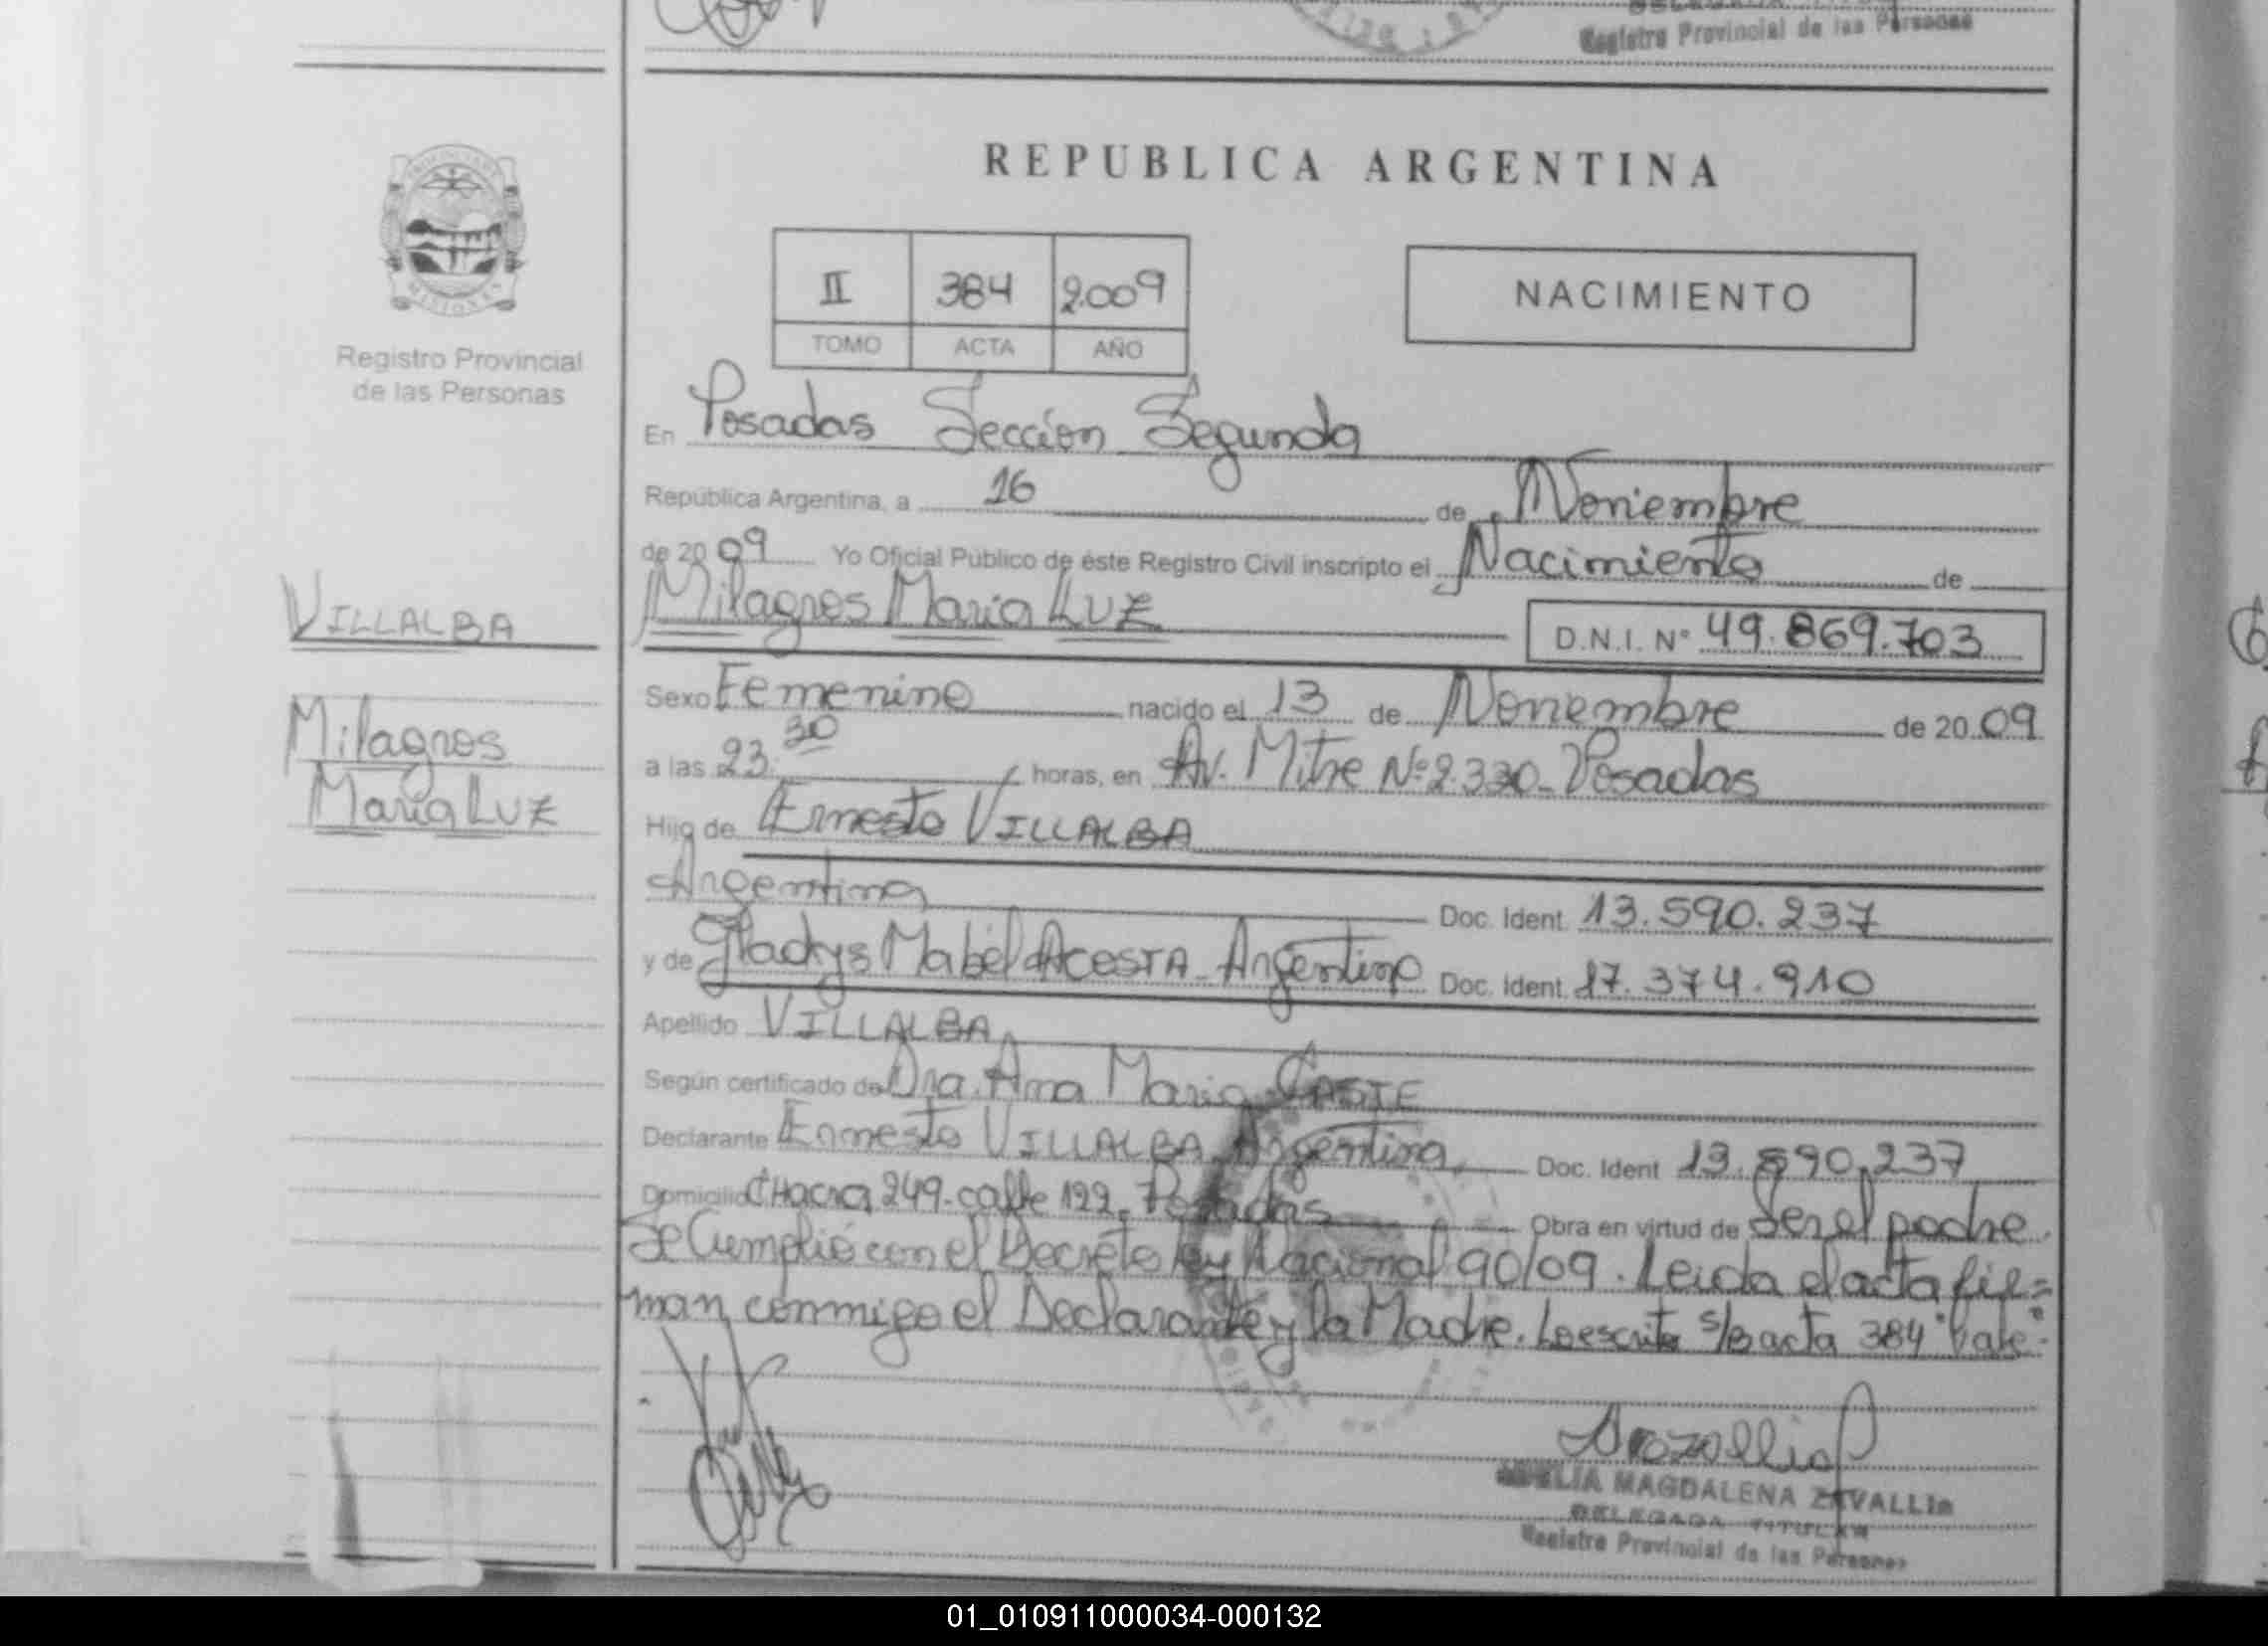 Registro Provincial de las Personas
MISIONES
Registro Provincial
de las Personas
VILLALBA
Milagros
María Luz
REPUBLICA ARGENTINA
II 384 2.009
TOMO ACTA AÑO
NACIMIENTO
En Posadas Sección Segunda
República Argentina, a 16 de Noviembre
de 20 09 Yo Oficial Público de éste Registro Civil inscripto el Nacimiento de
Milagros María Luz
D.N.I. Nº 49.869.703
Sexo Femenino nacido el 13 de Noviembre de 20 09
a las 23:30 horas, en Av. Mitre Nº 2.330- Posadas
Hijo de Ernesto VILLALBA
Argentino Doc. Ident. 13.590.237
y de Gladys Mabel ACOSTA - Argentina Doc. Ident. 17.374.910
Apellido VILLALBA
Según certificado de Dra. Ana María
Declarante Ernesto VILLALBA Argentino Doc. Ident 13.590.237
Domicilio CHacra 249-calle 122. Posadas Obra en virtud de Ser el padre.
Se Cumplió con el Decreto Ley Nacional 90/09. Leida el acta fir=
man conmigo el Declarante y la Madre. Lo escrito s/B acta 384 "Vale".
MAGDALENA ZAVALLIa
DELEGADA TITULAR
Registro Provincial de las Personas
01_010911000034-000132